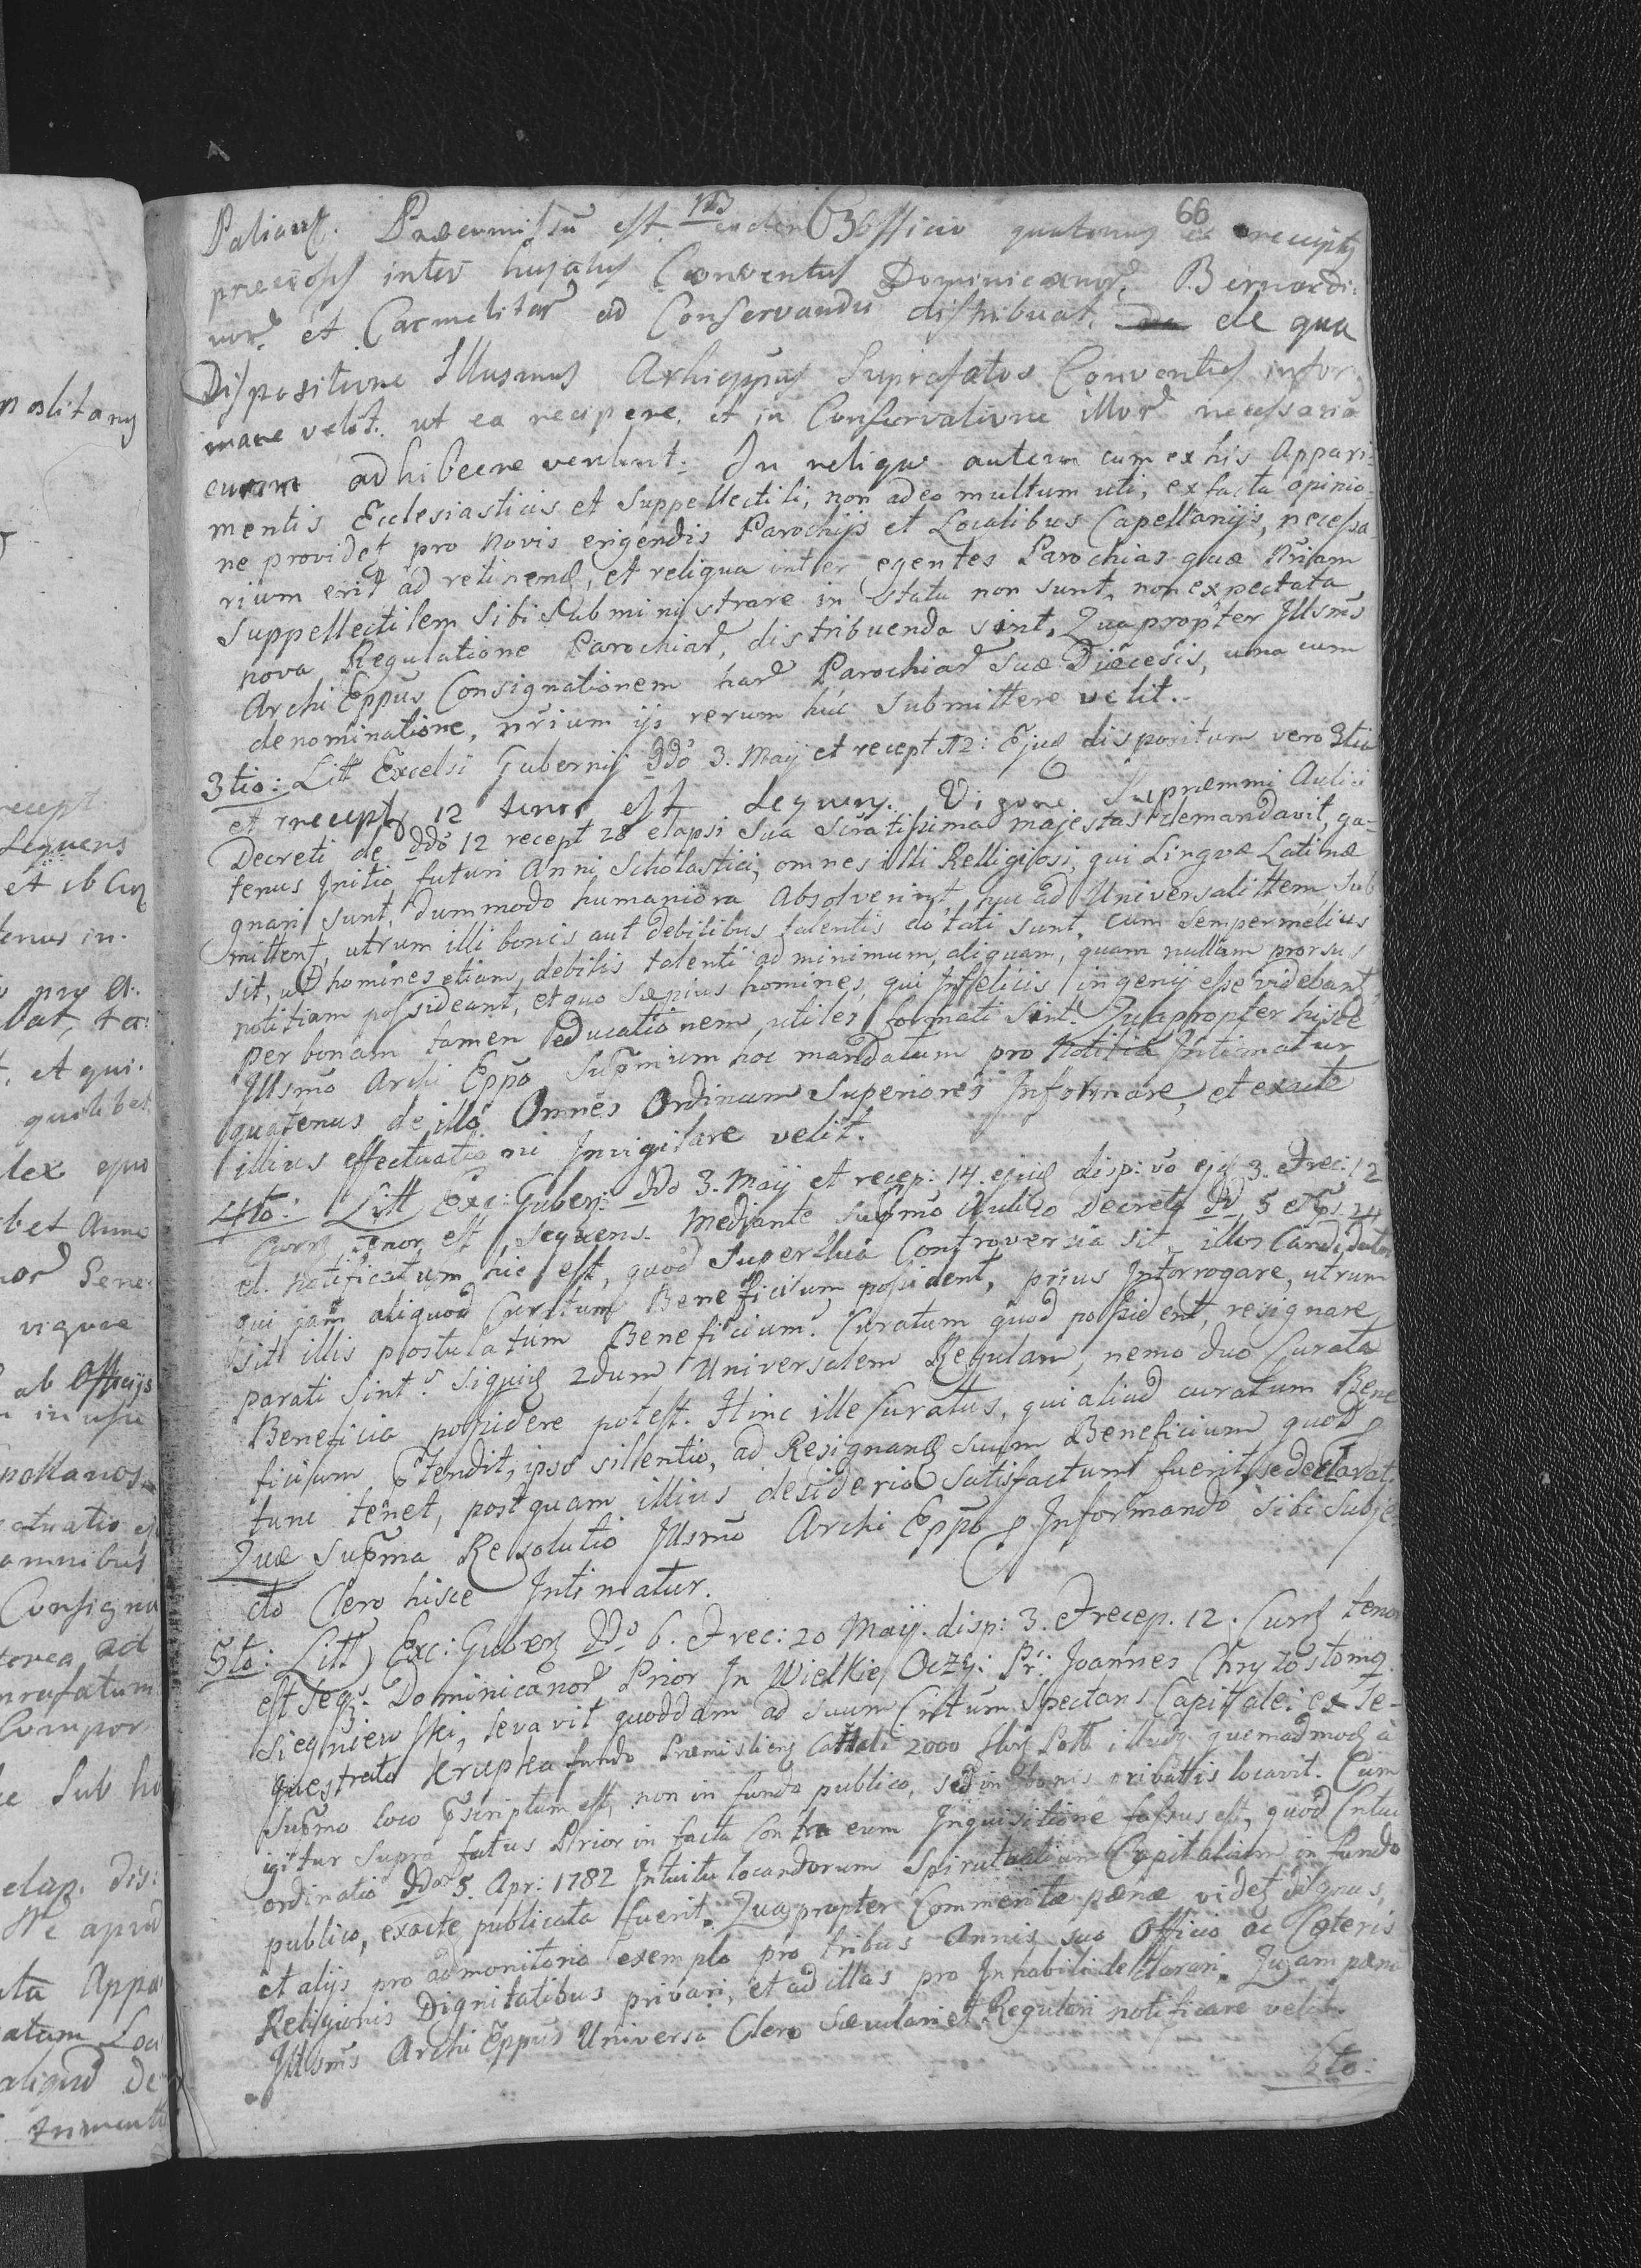 66
Paliauf. Praecomissu est eidem Officio quatenus ex receptis
preciosis inter hujatus Conventus Dominicanor. Bernardi-
nor. et Carmelitar ad Conservandu distribuat. de qua
Dispositione Illusmus Arhieppus Suprafatos Conventus infor-
mare velit. ut ea recipere, et in Conservatione illor necessaria
curam adhibeere venlint. In reliquo autem cum ex his Appari-
mentis Ecclesiasticis et Suppellectili, non adeo multum uti, ex facta opinio-
ne providet pro novis erigendis Parochijs et Localibus Capellanijs, necessa-
rium erit ad retinend, et reliqua inter egentes Parochias quae nriam
Suppellectilem sibi Subministrare in Statu non sunt, non expectata
nova Regulatione Parochiar, distribuenda sint. Quapropter Illsms
Archi Eppus Consignationem har Parochiar Suae Diaecesis, una cum
denominatione, nrium ijs rerum huc Submittere velit.
3tio: Litt Excelsi Gubernij ddo 3. Maij et recept 12: Ejus dispositum vero 3tia
et recept 12 tenor est Sequens. Vigore Supraemmi Aulici
Decreti de ddo 12 recept 28 elapsi Sua Scratissima majestas demandavit, qa-
tenus Initio futuri Anni Scholastici, omnes illi Relligiosi, qui Linguae Latinae
gnari sunt, dummodo humaniora Absolverint, huc ad Universalittem, Sub
mittent, utrum illi bonis aut debilibus talentis dotati sunt, cum semper melius
sit, ut homines etiam, debilis talenti ad minimum, aliquam, quam nullam prorsus
notitiam possideant, et quo saepius homines, qui Infelicis ingenij esse videbant,
per bonam tamen educationem utiles formati sint. Quapropter hisce
Illsmo Archi Eppo Supmium hoc mandatum pro Notitia Intimatur
quatenus de illo Omnes Ordinum Superiores Informare, et exacte
illius effectuationi Invigilare velit.
4to: Litt Exc: Gubern: ddo 3. Maij et recep: 14. ejus disp: vo ejus 3. et rec: 12
Curr tenor est, sequens. Mediante Supmo Aulico Decreto dd 5 et ps. 24
el. notificatum hic est, quod Superflua Controversia sit, illos Candidatos
qui jam aliquod Curatum Beneficium possident, prius Interrogare, utrum
sit illis postulatum Beneficium. Curatum quod possident, resignare
parati sint? siquid 2dum Universalem Regulam, nemo duo Curata
Beneficia possidere potest. Hinc ille Curatus, qui aliud curatum Bene
ficium ptendit, ipso sillentio, ad Resignand suum Beneficium quod
tunc tenet, postquam illius desiderio Satisfactum fuerit, se declarat.
Quae Supma Resolutio Illsmo Archi Eppo p Informando sibi Subje-
cto Clero hisce Intimatur.
5to: Litt Exc: Gubern ddo 6. et rec: 20 Maij. disp: 3. et recep. 12. Curr tenor
est seqs. Dominicanor Prior In Wielkie Oczy: Pr: Joannes Chryzostomg
Siegniewski, levavit quoddam ad suum Cnttum Spectans Capittale: ex Se-
questrata fundo Praemisliens 2000 flor Poll illudq quemadmod à
Supmo loco pscriptum est, non in fundo publico, sed in bonis privattis locavit. Cum
igitur supra fatus Prior in facta Contra eum Inquisitione fassus est, quod Cntui
ordinatio ddo 5. Apr: 1782 Intuitu locandorum Spiritualium Capitalium in fundo
publico, exacte publicata fuerit. Quapropter Commeritae paenae videt dignus,
et alijs pro admonitorio exemplo pro tribus Annis suo Officio ac Caeteris
Religionis Dignitatibus privari, et ad illas pro Inhabili declarari. Quam paena
Illsms Archi Eppus Universo Clero Saeculari et Regulari notificare velit.
6to: